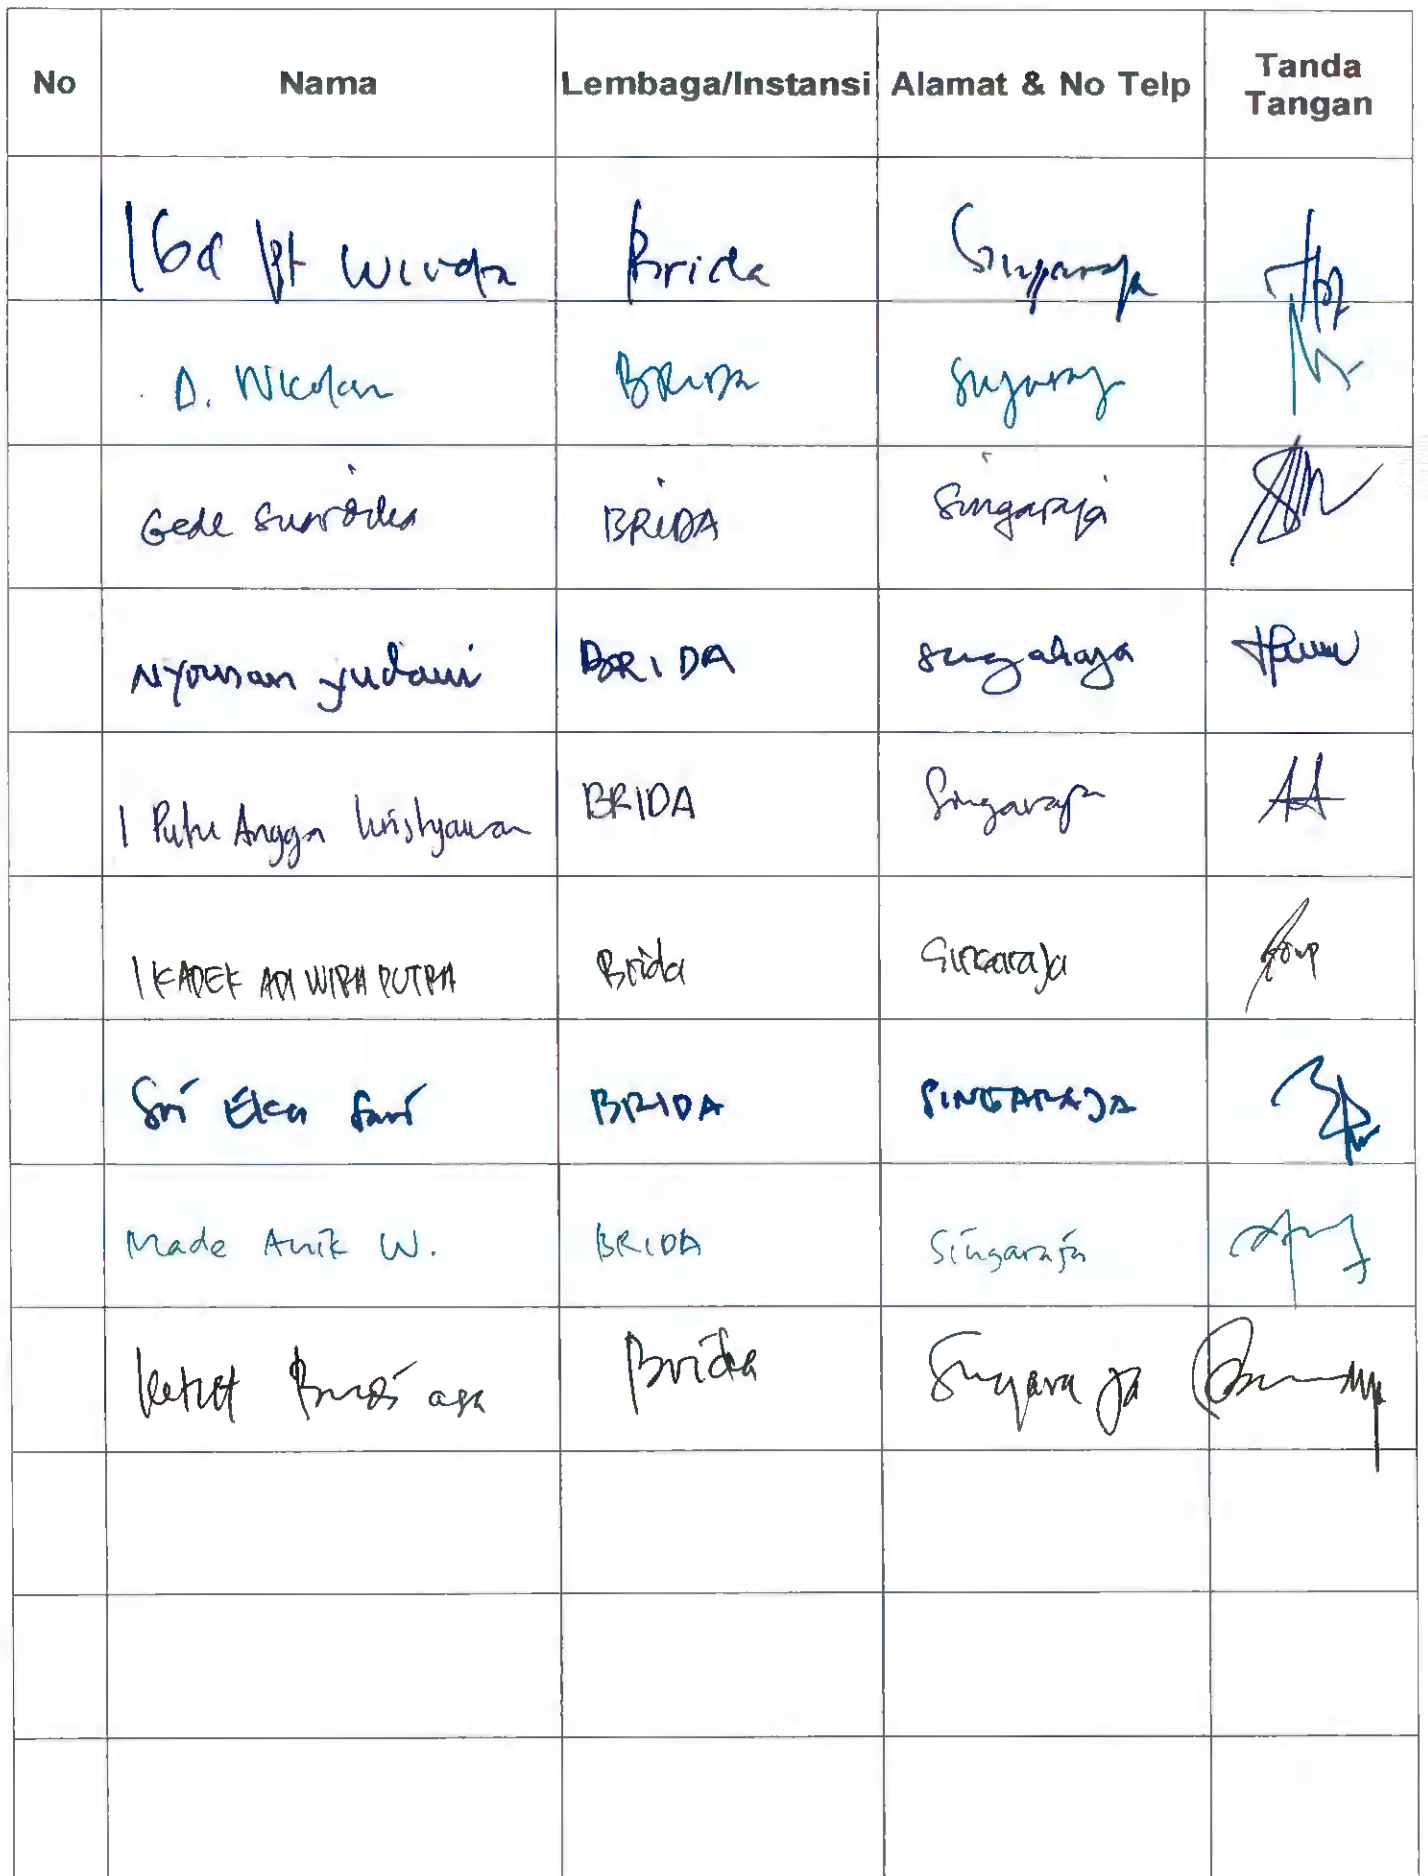 No Nama Lembaga/Instansi Alamat & No Telp Tanda Tangan
Brida Singaraja
D. BRIDA Singaraja
Gede BRIDA Singaraja
Nyoman Yudani BRIDA Singaraja
I Putu Angga Kristyawan BRIDA Singaraja
I KADEK ADI WIRA PUTRA Brida Singaraja
Sri Eka Sari BRIDA SINGARAJA
Made Anik W. BRIDA Singaraja
Ketut Brida Singaraja